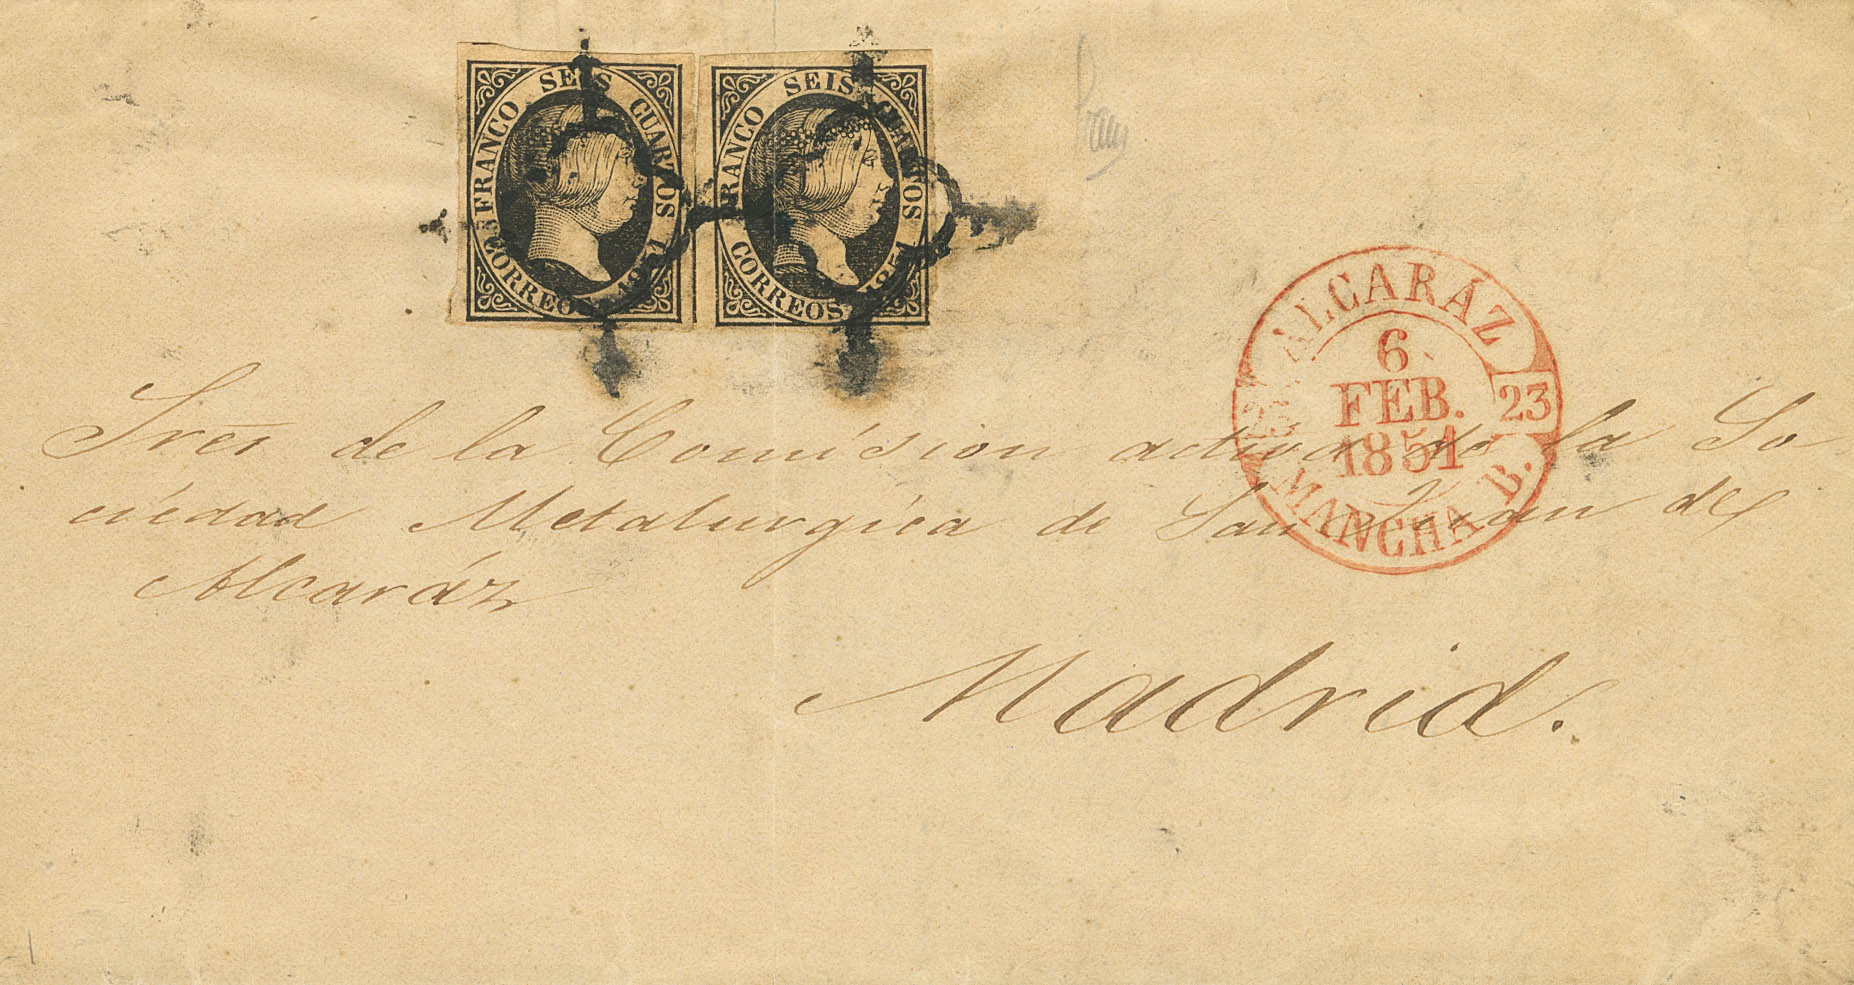 FRANCO SEIS CUARTOS
CORREOS 1851
FRANCO SEIS CUARTOS
CORREOS 1851
ALCARÁZ
6
FEB.
1851
23
MANCHA B.
Sres de la Comision activa de la So
ciedad Metalurgica de San Juan de
Alcaráz
Madrid.